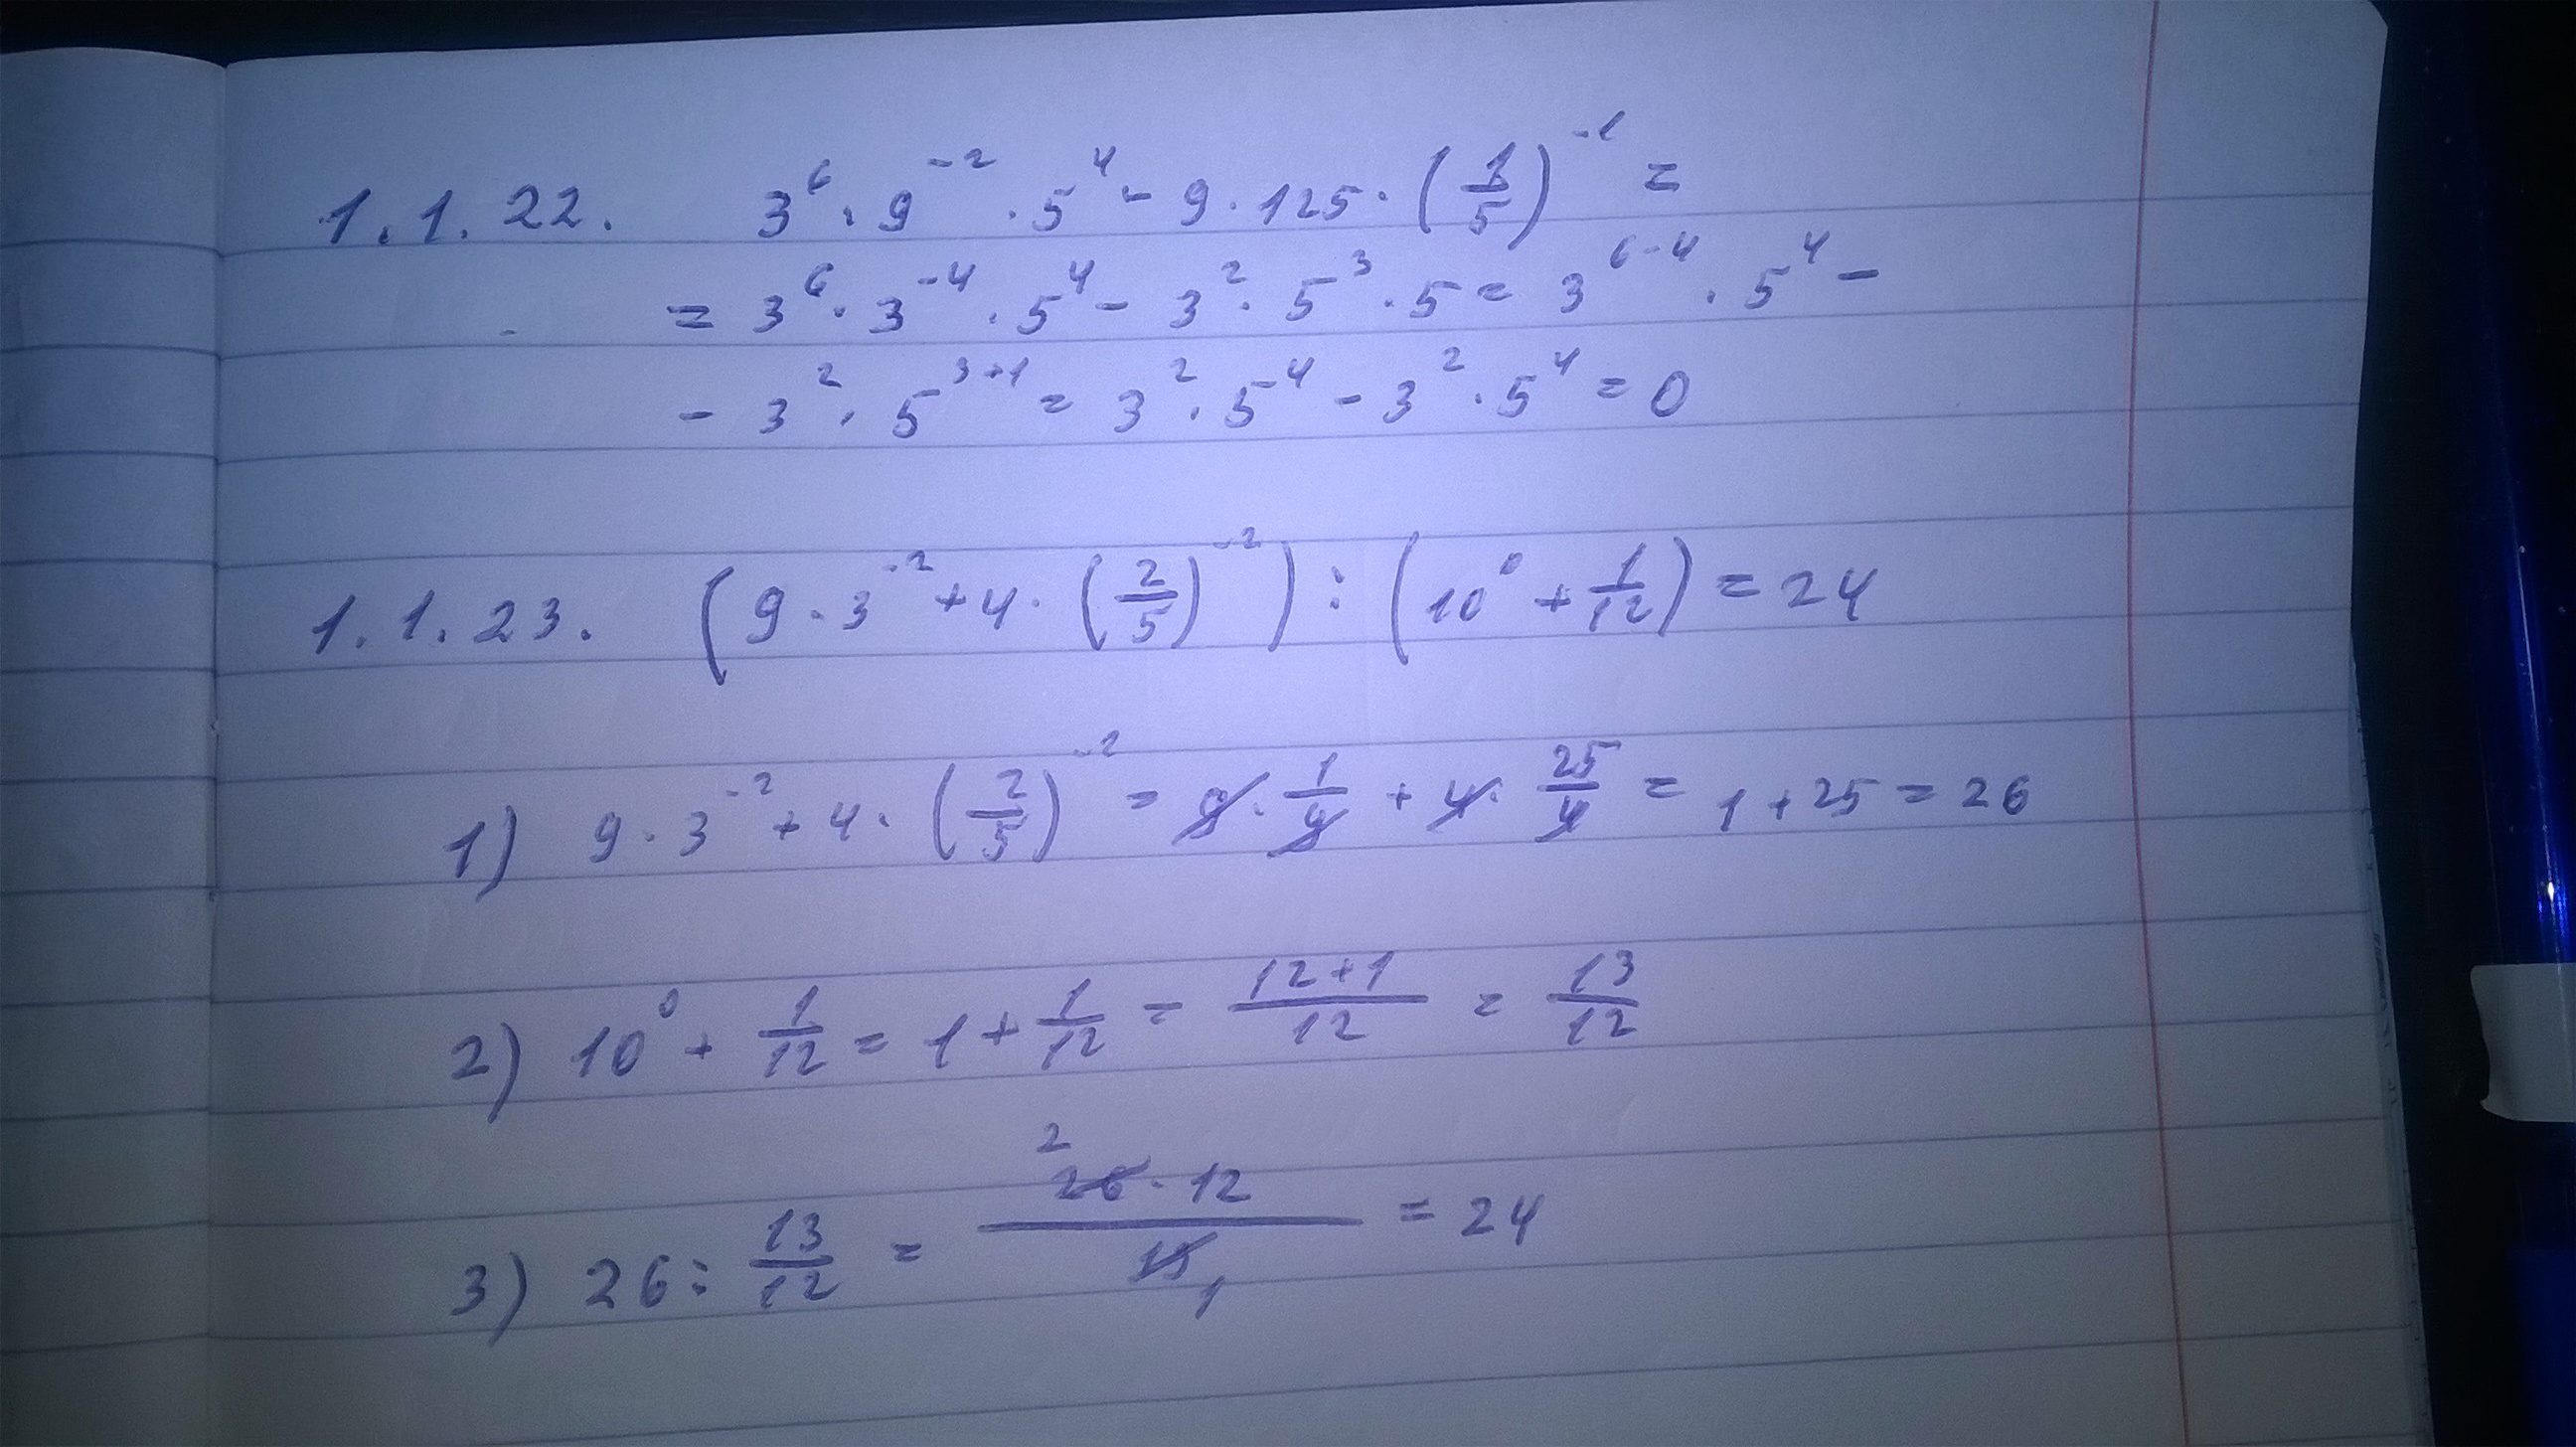 1.1.22. 3⁶ · 9⁻² · 5⁴ - 9 · 125 · (1/5)⁻¹ =
= 3⁶ · 3⁻⁴ · 5⁴ - 3² · 5³ · 5 = 3⁶⁻⁴ · 5⁴ -
- 3² · 5³⁺¹ = 3² · 5⁴ - 3² · 5⁴ = 0
1.1.23. (9 · 3⁻² + 4 · (2/5)⁻²) : (10⁰ + 1/12) = 24
1) 9 · 3⁻² + 4 · (2/5)⁻² = 9 · 1/9 + 4 · 25/4 = 1 + 25 = 26
2) 10⁰ + 1/12 = 1 + 1/12 = (12+1)/12 = 13/12
3) 26 : 13/12 = (26² · 12)/(13₁) = 24